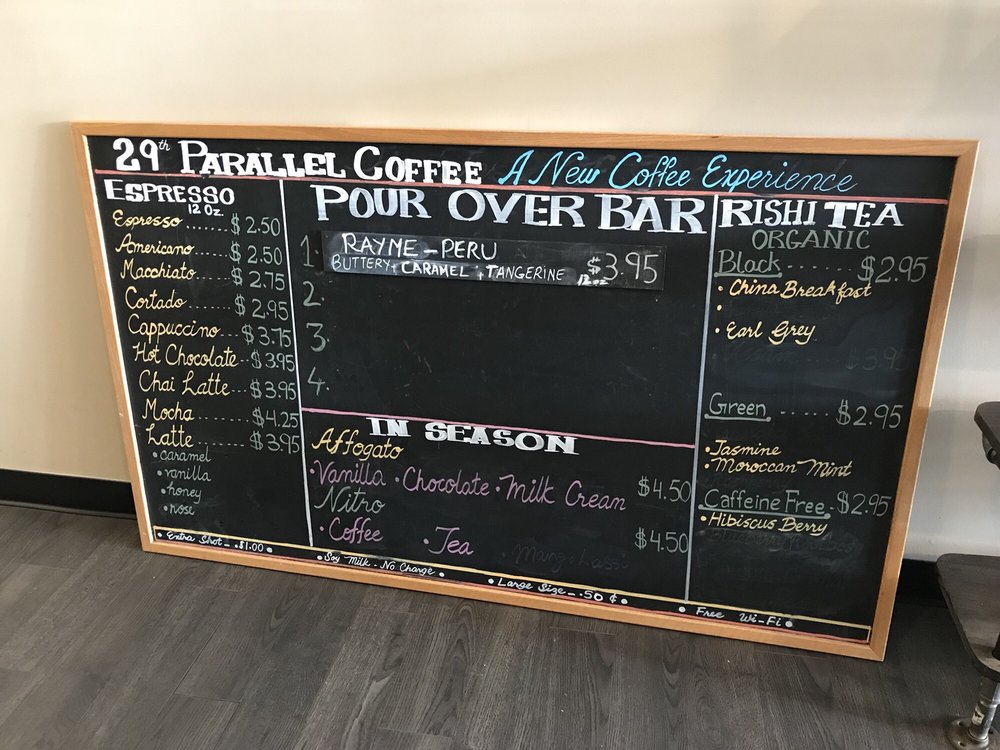 29th PARALLEL COFFEE A New Coffee Experience
ESPRESSO
12 Oz.
Espresso ....... $2.50
Americano ..... $2.50
Macchiato ..... $2.75
Cortado ..... $2.95
Cappuccino .... $3.75
Hot Chocolate -- $3.95
Chai Latte .... $3.95
Mocha ....... $4.25
Latte ....... $3.95
• caramel
• vanilla
• honey
• rose
POUR OVER BAR
1. RAYME - PERU
BUTTERY, CARAMEL, TANGERINE 12oz $3.95
2.
3.
4.
IN SEASON
Affogato
• Vanilla • Chocolate • Milk Cream $4.50
Nitro
• Coffee • Tea $4.50
Mango Lassi
RISHI TEA
ORGANIC
Black ------- $2.95
• China Breakfast
•
• Earl Grey
$3.95
Green ..... $2.95
• Jasmine
• Moroccan Mint
Caffeine Free - $2.95
• Hibiscus Berry
• Extra Shot - $1.00 • • Soy Milk - No Charge • • Large Size - .50 ¢ • • Free Wi-Fi •